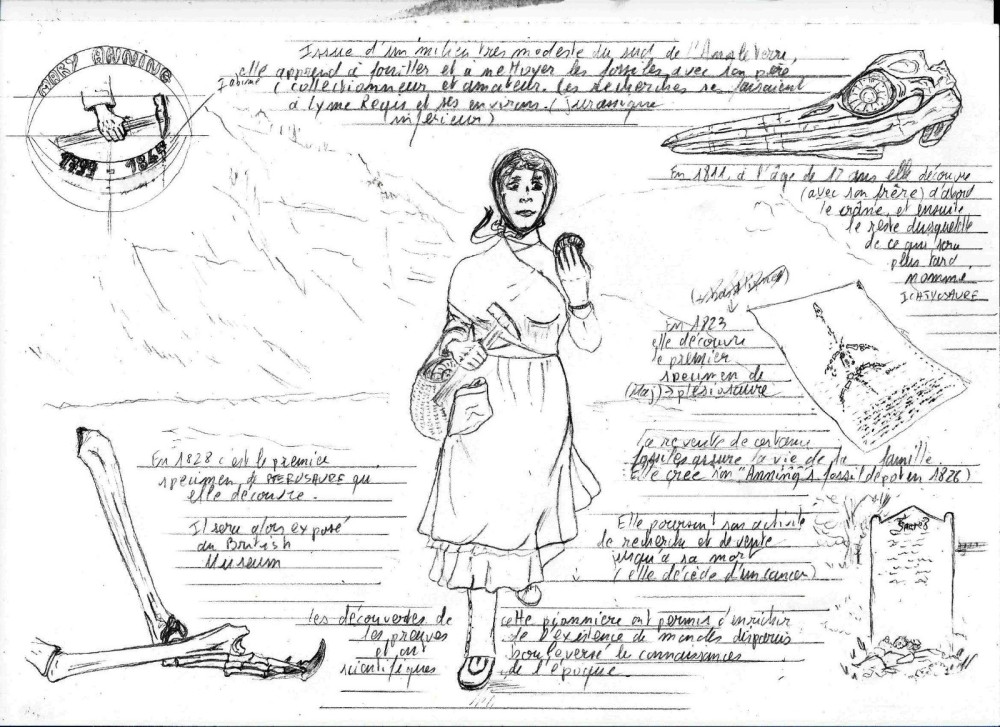 MARY ANNING
1799 - 1847
Issue d'un milieu très modeste du sud de l'Angleterre,
elle apprend à fouiller et à nettoyer les fossiles avec son père
(collectionneur et amateur. Les recherches se faisaient
à Lyme Regis et ses environs. (jurassique
inférieur)
En 1811, à l'âge de 12 ans elle découvre
(avec son frère) d'abord
le crâne, et ensuite
le reste du squelette
de ce qui sera
plus tard
nommé
ICHTYOSAURE
En 1823
elle découvre
le premier
specimen de
(Maj) → plésiosaure
La revente de certains
fossiles assure la vie de la famille.
Elle crée son "Anning's fossil depot en 1826)
En 1828 c'est le premier
specimen de PTEROSAURE qu
elle découvre.
Il sera alors exposé
au British
Museum
Elle poursuit son activité
de recherche et de vente
jusqu'à sa mort
(elle décède d'un cancer)
Les découvertes de cette pionnière ont permis d'enrichir
les preuves de l'existence de mondes disparus
et ont bouleversé les connaissances
scientifiques de l'époque.